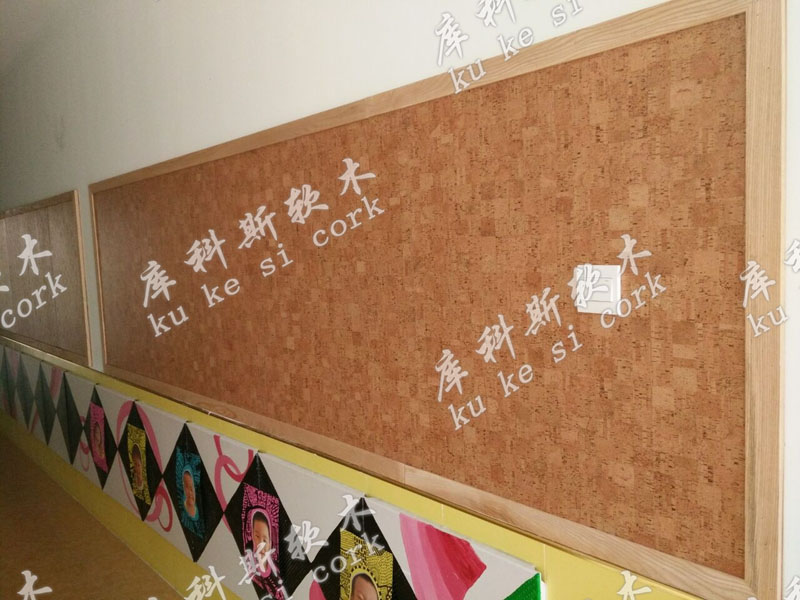 库科斯软木
ku ke si cork
库科斯软木
ku ke si cork
软木
cork
库科斯软木
ku ke si cork
库
ku
库科斯软木
ku ke si cork